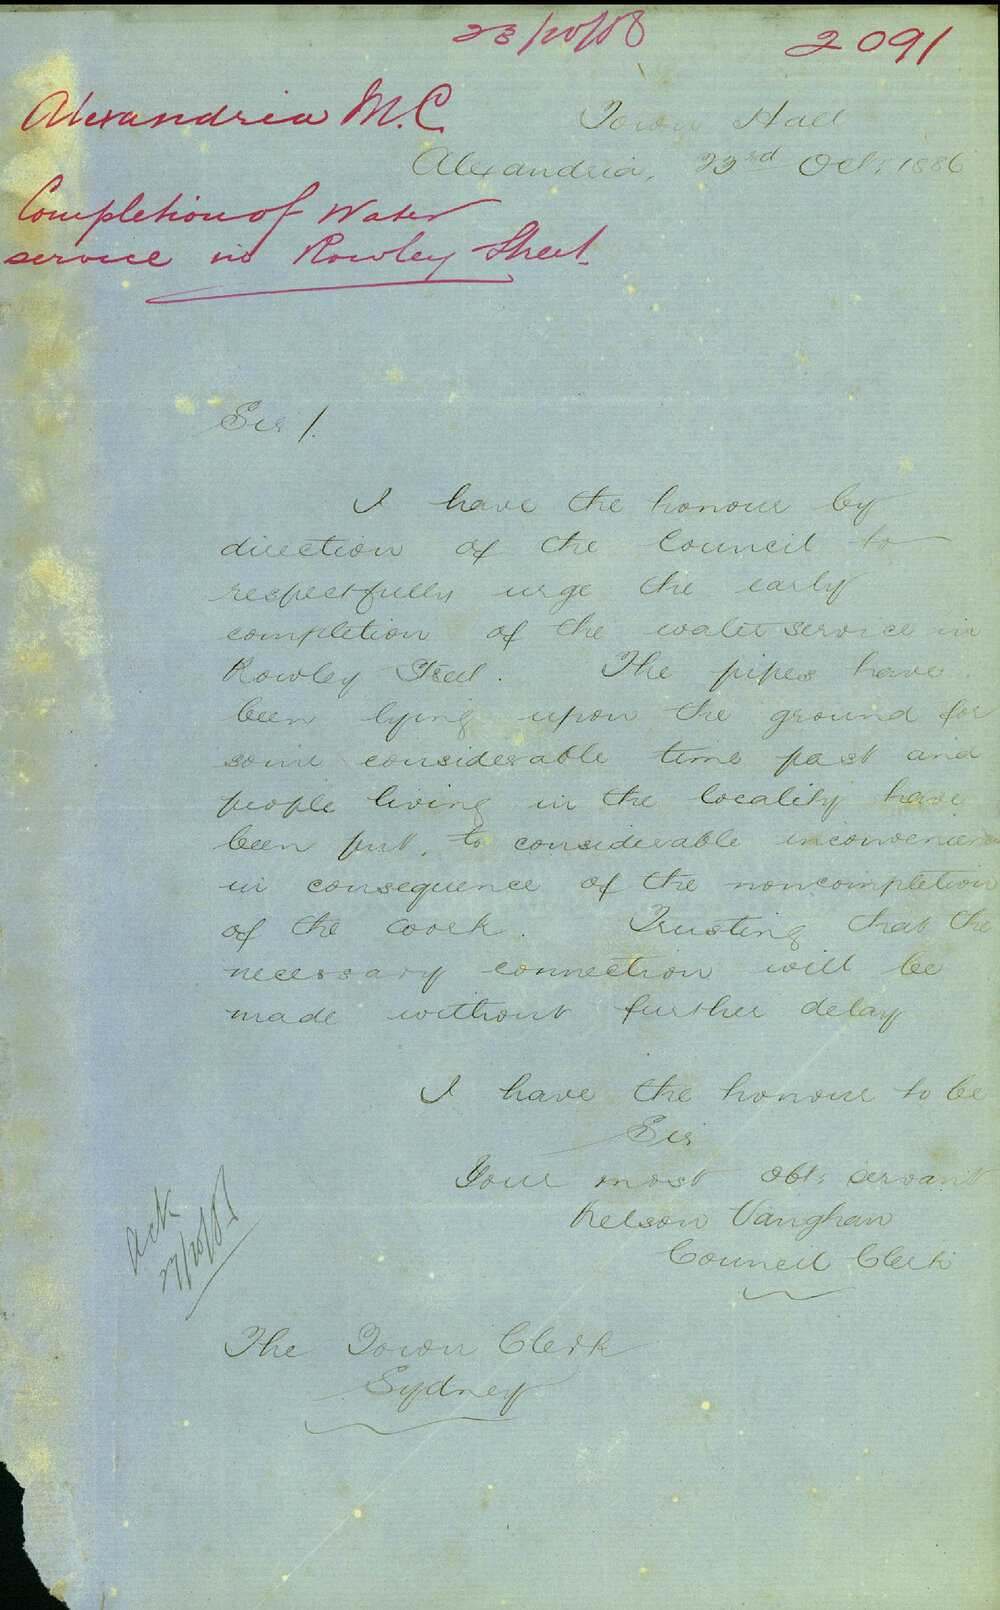 23/10/86
2091
Alexandria M.C.
Town Hall
Alexandria, 23rd Oct. 1886
Completion of Water
service in Rowley Street.
Sir /.
I have the honour by
direction of the Council to
respectfully urge the early
completion of the water service in
Rowley Street. The pipes have
been lying upon the ground for
some considerable time past and
people living in the locality have
been put to considerable inconvenience
in consequence of the noncompletion
of the work. Trusting that the
necessary connection will be
made without further delay
I have the honour to be
Sir
Your most obt. servant
Nelson Vaughan
Council Clerk
Ack
27/10/86
The Town Clerk
Sydney